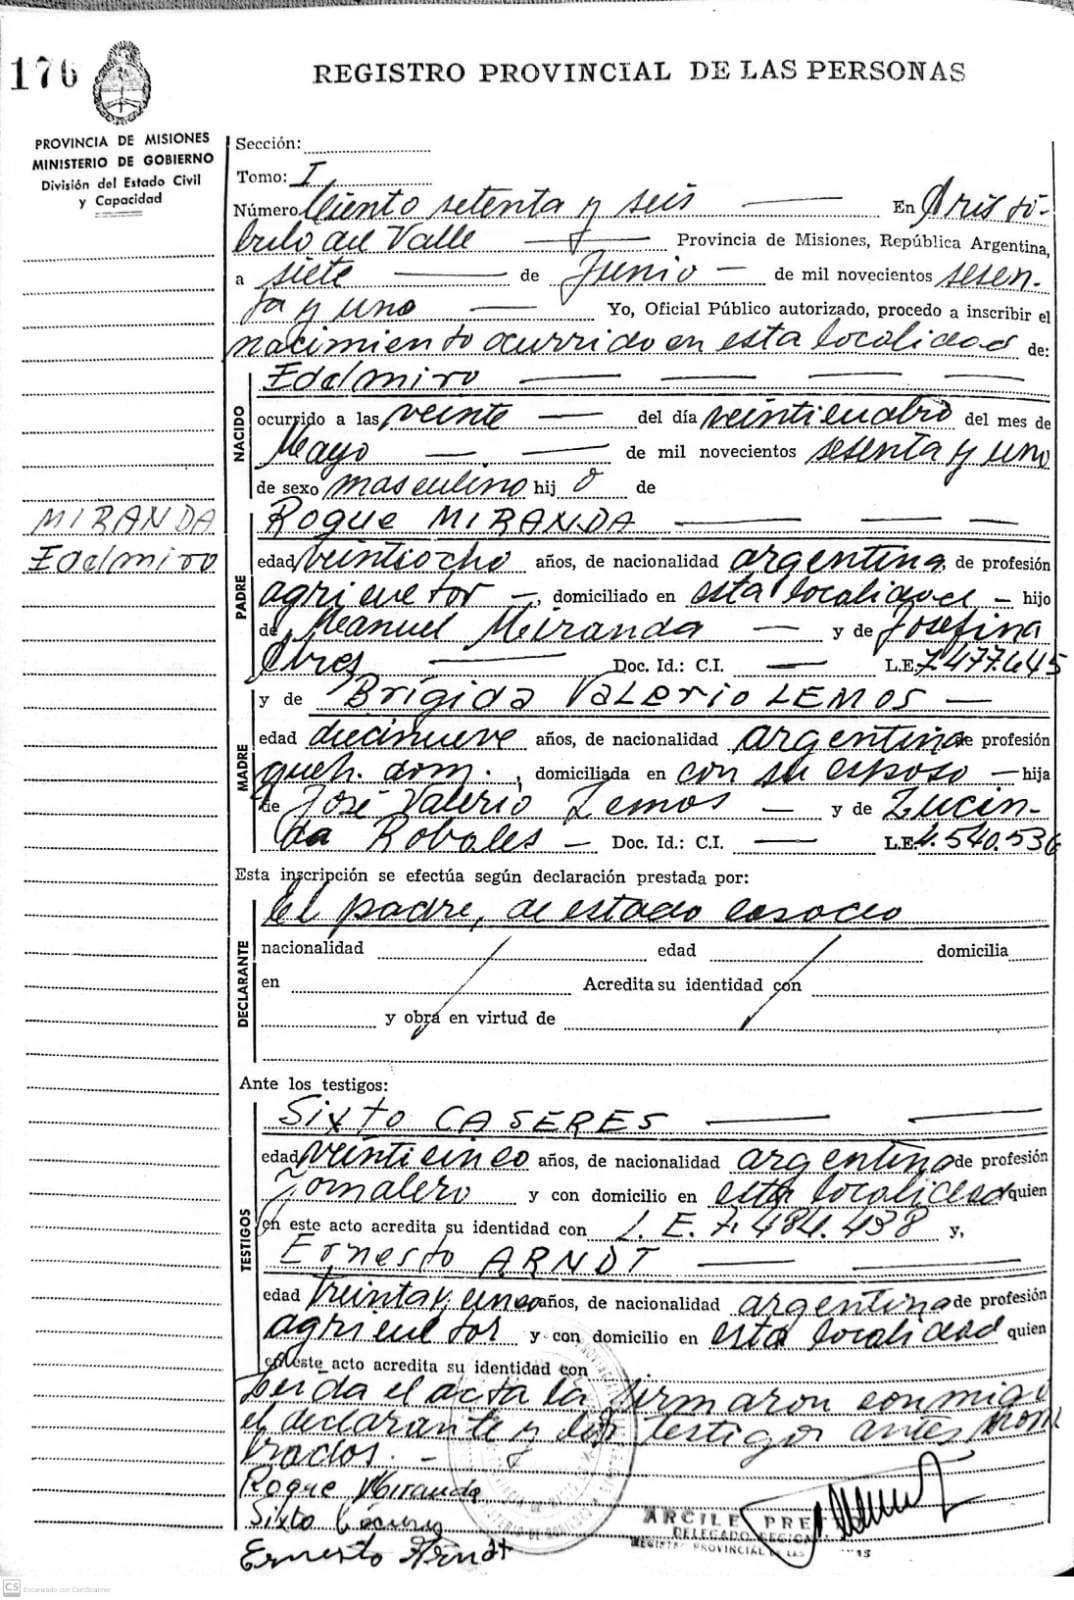 176
REGISTRO PROVINCIAL DE LAS PERSONAS
PROVINCIA DE MISIONES
MINISTERIO DE GOBIERNO
División del Estado Civil
y Capacidad
Sección:
Tomo: I
Número Ciento setenta y seis En Aristó-
bulo del Valle Provincia de Misiones, República Argentina,
a siete de Junio de mil novecientos sesen-
ta y uno Yo, Oficial Público autorizado, procedo a inscribir el
nacimiento ocurrido en esta localidad de:
NACIDO
Edelmiro
ocurrido a las veinte del día veinticuatro del mes de
Mayo de mil novecientos sesenta y uno
de sexo masculino hij o de
MIRANDA
Edelmiro
PADRE
Roque MIRANDA
edad veintiocho años, de nacionalidad argentina, de profesión
agricultor, domiciliado en esta localidad hijo
de Manuel Miranda y de Josefina
Doc. Id.: C.I. L.E. 7.477.645
y de Brígida Valerio LEMOS
MADRE
edad diecinueve años, de nacionalidad argentina de profesión
queh. dom., domiciliada en con su esposo hija
de José Valerio Lemos y de Lucin-
da Robales Doc. Id.: C.I. L.E. 4.540.536
Esta inscripción se efectúa según declaración prestada por:
DECLARANTE
El padre, de estado casado
nacionalidad edad domicilia
en Acredita su identidad con
y obra en virtud de
Ante los testigos:
TESTIGOS
Sixto CASERES
edad veinticinco años, de nacionalidad argentina de profesión
Jornalero y con domicilio en esta localidad quien
en este acto acredita su identidad con L.E. 7.484.438 y,
Ernesto ARNDT
edad treinta y cinco años, de nacionalidad argentina de profesión
agricultor y con domicilio en esta localidad quien
en este acto acredita su identidad con
Leída el acta la firmaron conmigo
el declarante y los testigos antes nom
brados.
Roque Miranda
Sixto Caceres
Ernesto Arndt
ARCILE PRE
DELEGADO REGIONAL
REGISTRO PROVINCIAL DE LAS
CS Escaneado con CamScanner